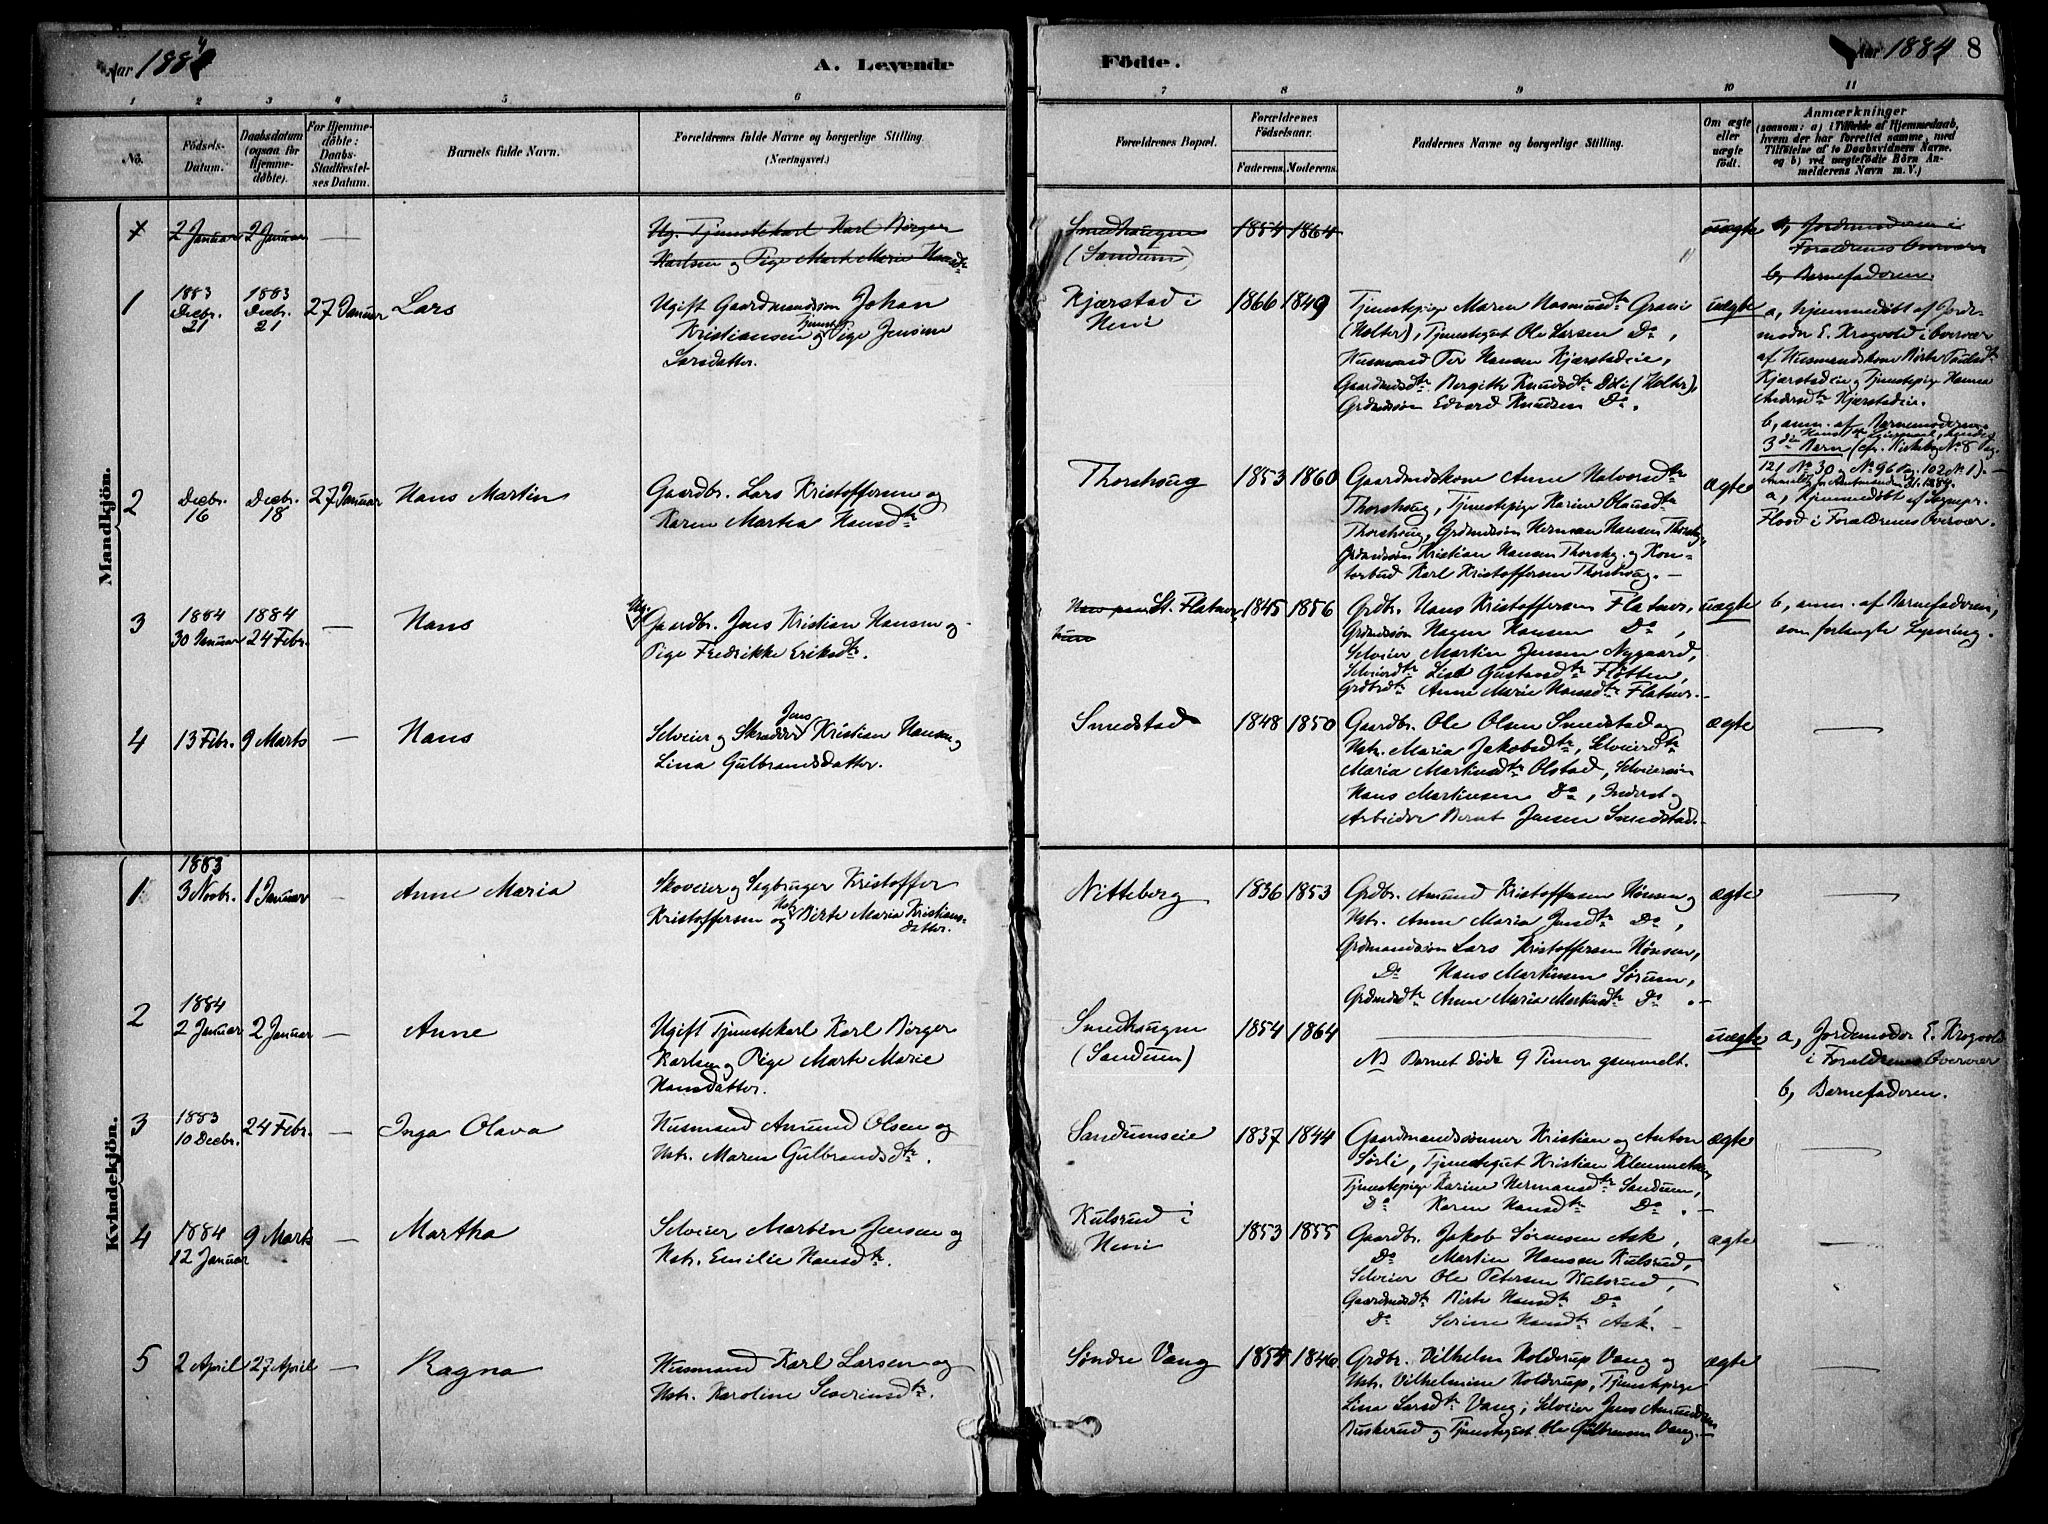 Aar 1884
A. Levende
Födte.
Aar 1884
8
1 2 3 4 5 6 7 8 9 10 11
No.
Födsels-
Datum.
Daabsdatum
(ogsaa for
Hjemme-
döbte).
For Hjemme-
döbte:
Daabs-
Stadfæstel-
ses Datum.
Barnets fulde Navn.
Forældrenes fulde Navne og borgerlige Stilling.
(Næringsvei.)
Forældrenes Bopæl.
Forældrenes
Födselsaar.
Faderens. Moderens.
Faddernes Navne og borgerlige Stilling.
Om ægte
eller
uægte
födt.
Anmærkninger
(saasom: a) i Tilfælde af Hjemmedaab,
hvem der har forrettet samme, med
Tilföielse af to Daabsvidners Navne,
og b) ved uægtefödte Börn An-
melderens Navn m. V.)
Mandkjön.
2 Januar 2 Januar —
Ug. Tjenestekarl Karl Börger
Karlsen og Pige Marte Marie Hansdtr
Smedhaugen
(Sandum)
1854 1864
uægte
a, Jordemoderen i
Forældrenes Overvær
b, Barnefaderen.
1
1883
Decbr.
21
1883
Decbr.
21
27 Januar
Lars
Ugift Gaardmandssön Johan
Kristiansen og Tjenest. Pige Jensine
Larsdatter.
Kjærstad i
Heni
1866 1849
Tjenestepige Maren Rasmusdtr Granli
(Holter), Tjenestegut Ole Larsen Do,
Husmand Per Hansen Kjærstadeie,
Gaardmdsdtr Bergitte Knudsdtr Döli (Holter),
Grdmdssön Edvard Knudsen Do.
uægte
a, hjemmedöbt af Jorde-
moder E. Krogvold i Overvær
af Husmandskone Birte Paulsdtr
Kjærstadeie og Tjenestepige Hanna
Andersdtr Kjærstadeie.
b, anm. af Barnemoderen.
3die Barn (cfr. Kirkebog No 8 Pag.
121 No 30 og No 9 6 Pag. 102 No 1) —
2
Decbr.
16
Decbr.
18
27 Januar
Hans Martin
Gaardbr. Lars Kristoffersen og
Karen Martea Hansdtr
Thorshoug
1853 1860
Gaardmdskone Anne Halvorsdtr
Thorshoug, Tjenestepige Karine Olausdtr
Thorshoug, Grdmdssön Herman Hansen Thorshg,
Grdmdssön Kristian Hansen Thorshg. og Kon-
torbud Karl Kristoffersen Thorshoug. —
ægte
a, Hjemmedöbt af Sognepr.
Flood i Forældrenes Overvær.
3
1884
30 Januar
1884
24 Febr.
—
Hans
Ug. Gaardbr. Jens Kristian Hansen og
Pige Fredrikke Eriksdtr.
St. Flatner
1845 1856
Grdbr. Hans Kristoffersen Flatner,
Grdmdssön Hagen Hansen Do,
Selveier Martin Jensen Nygaard,
Selveierdtr Lise Gustavsdtr Fløtten,
Grdbrdtr Anne Marie Hansdtr Flatner. —
uægte
b, anm. af Barnefaderen,
som forlangte Lysning.
4
13 Febr. 9 Marts —
Hans
Selveier og Skrædder Jens Kristian Hansen og
Lina Gulbrandsdatter.
Smedstad
1848 1850
Gaardbr. Ole Olsen Smedstad og
Hstr. Maria Jakobsdtr, Selveierdtr
Maria Martinsdtr Olstad, Selveiersön
Hans Martinsen Do, Inderst og
Arbeider Bernt Jensen Smedstad. —
ægte
—
Kvindekjön.
1
1883
3 Novbr. 1 Januar —
Anne Maria
Skoveier og Sagbruger Kristoffer
Kristoffersen og Hstr Birte Maria Kristians-
datter.
Nitteberg
1836 1853
Grdbr. Amund Kristoffersen Hönsen og
Hstr. Anne Maria Jensdtr Do,
Grdmandssön Lars Kristoffersen Hönsen,
Do Hans Martinsen Sörum,
Grdmdsdtr Anne Maria Martinsdtr Do. —
ægte
—
2
1884
2 Januar 2 Januar —
Anne
Ugift Tjenestekarl Karl Börger
Karlsen og Pige Marte Marie
Hansdatter.
Smedhaugen
(Sandum)
1854 1864
NB Barnet döde 9 Timer gammelt.
uægte
a, Jordemoder E. Krogvold
i Forældrenes Overvær
b, Barnefaderen.
3
1883
10 Decbr. 24 Febr. —
Inga Olava
Husmand Amund Olsen og
Hstr. Maren Gulbrandsdtr.
Sandumseie
1837 1844
Gaardmandssönner Kristian og Anton
Sörli, Tjenestegut Kristian Klemmetsen,
Tjenestepige Karine Hermansdtr Sandum,
Do Karen Hansdtr Do. —
ægte
—
4
1884
12 Januar
9 Marts —
Martha
Selveier Martin Jensen og
Hstr. Emilie Hansdtr.
Kulsrud i
Heni
1853 1855
Gaardbr. Jakob Sörensen Ask,
Do Martin Hansen Kulsrud,
Selveier Ole Petersen Kulsrud,
Gaardmdsdtr Birte Hansdtr Do,
Do Serine Hansdtr Ask. —
ægte
—
5
2 April 27 April —
Ragna
Husmand Karl Larsen og
Hstr. Karoline Severinsdtr.
Söndre Vang
1854 1846
Grdbr. Vilhelm Kolderup Vang og
Hstr. Vilhelmine Kolderup, Tjenestepige
Lina Larsdtr Vang, Selveier Jens Amundsen
Buskerud og Tjenestegut Ole Gulbransen Vang. —
ægte
—